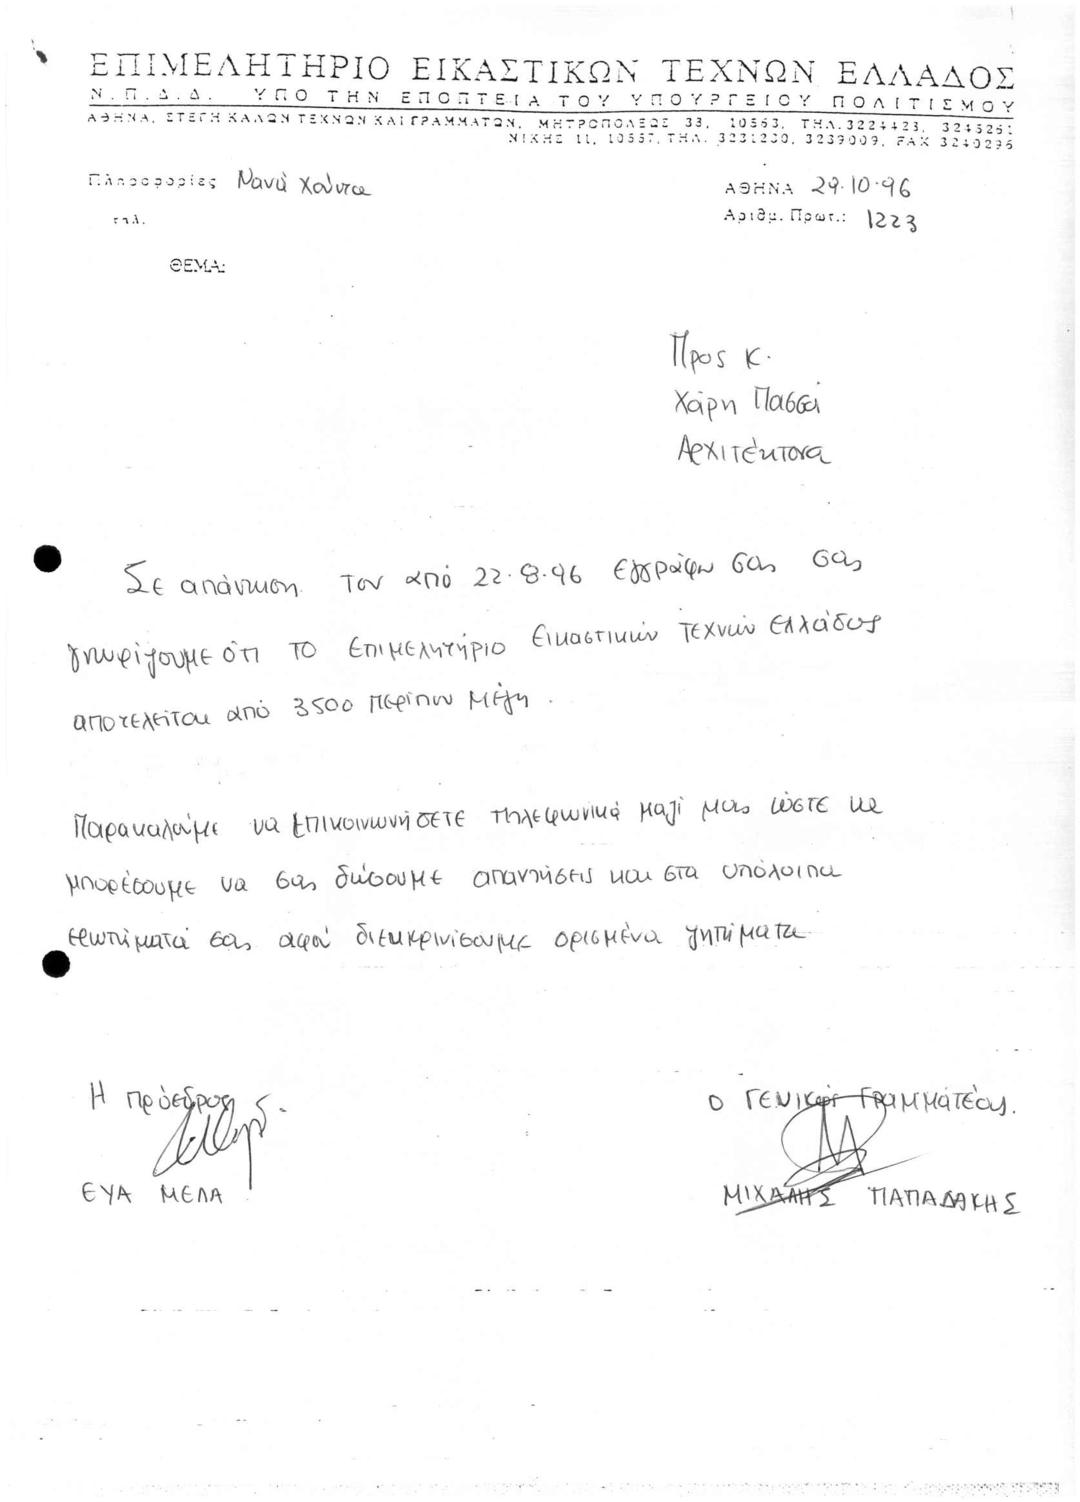 ΕΠΙΜΕΛΗΤΗΡΙΟ ΕΙΚΑΣΤΙΚΩΝ ΤΕΧΝΩΝ ΕΛΛΑΔΟΣ
Ν.Π.Δ.Δ. ΥΠΟ ΤΗΝ ΕΠΟΠΤΕΙΑ ΤΟΥ ΥΠΟΥΡΓΕΙΟΥ ΠΟΛΙΤΙΣΜΟΥ
ΑΘΗΝΑ, ΣΤΕΓΗ ΚΑΛΩΝ ΤΕΧΝΩΝ ΚΑΙ ΓΡΑΜΜΑΤΩΝ, ΜΗΤΡΟΠΟΛΕΩΣ 38, 10563, ΤΗΛ. 3224423, 3245261
ΝΙΚΗΣ 11, 10557, ΤΗΛ. 3231230, 3239009, FAX 3240296
Πληροφορίες Νανά Χούντα
ΑΘΗΝΑ 29.10.96
τηλ.
Αριθμ. Πρωτ.: 1223
ΘΕΜΑ:
Προς κ.
Χάρη Πασσά
Αρχιτέκτονα
Σε απάντηση του από 22.8.96 εγγράφου σας σας
γνωρίζουμε ότι το Επιμελητήριο Εικαστικών Τεχνών Ελλάδος
αποτελείται από 3500 περίπου Μέλη.
Παρακαλούμε να επικοινωνήσετε τηλεφωνικά μαζί μας ώστε να
μπορέσουμε να σας δώσουμε απαντήσεις και στα υπόλοιπα
ερωτήματά σας αφού διευκρινίσουμε ορισμένα ζητήματα
Η Πρόεδρος
Ο ΓΕΝΙΚός ΓΡΑΜΜΑΤΈας.
ΕΥΑ ΜΕΛΑ
ΜΙΧΑΛΗΣ ΠΑΠΑΔΑΚΗΣ